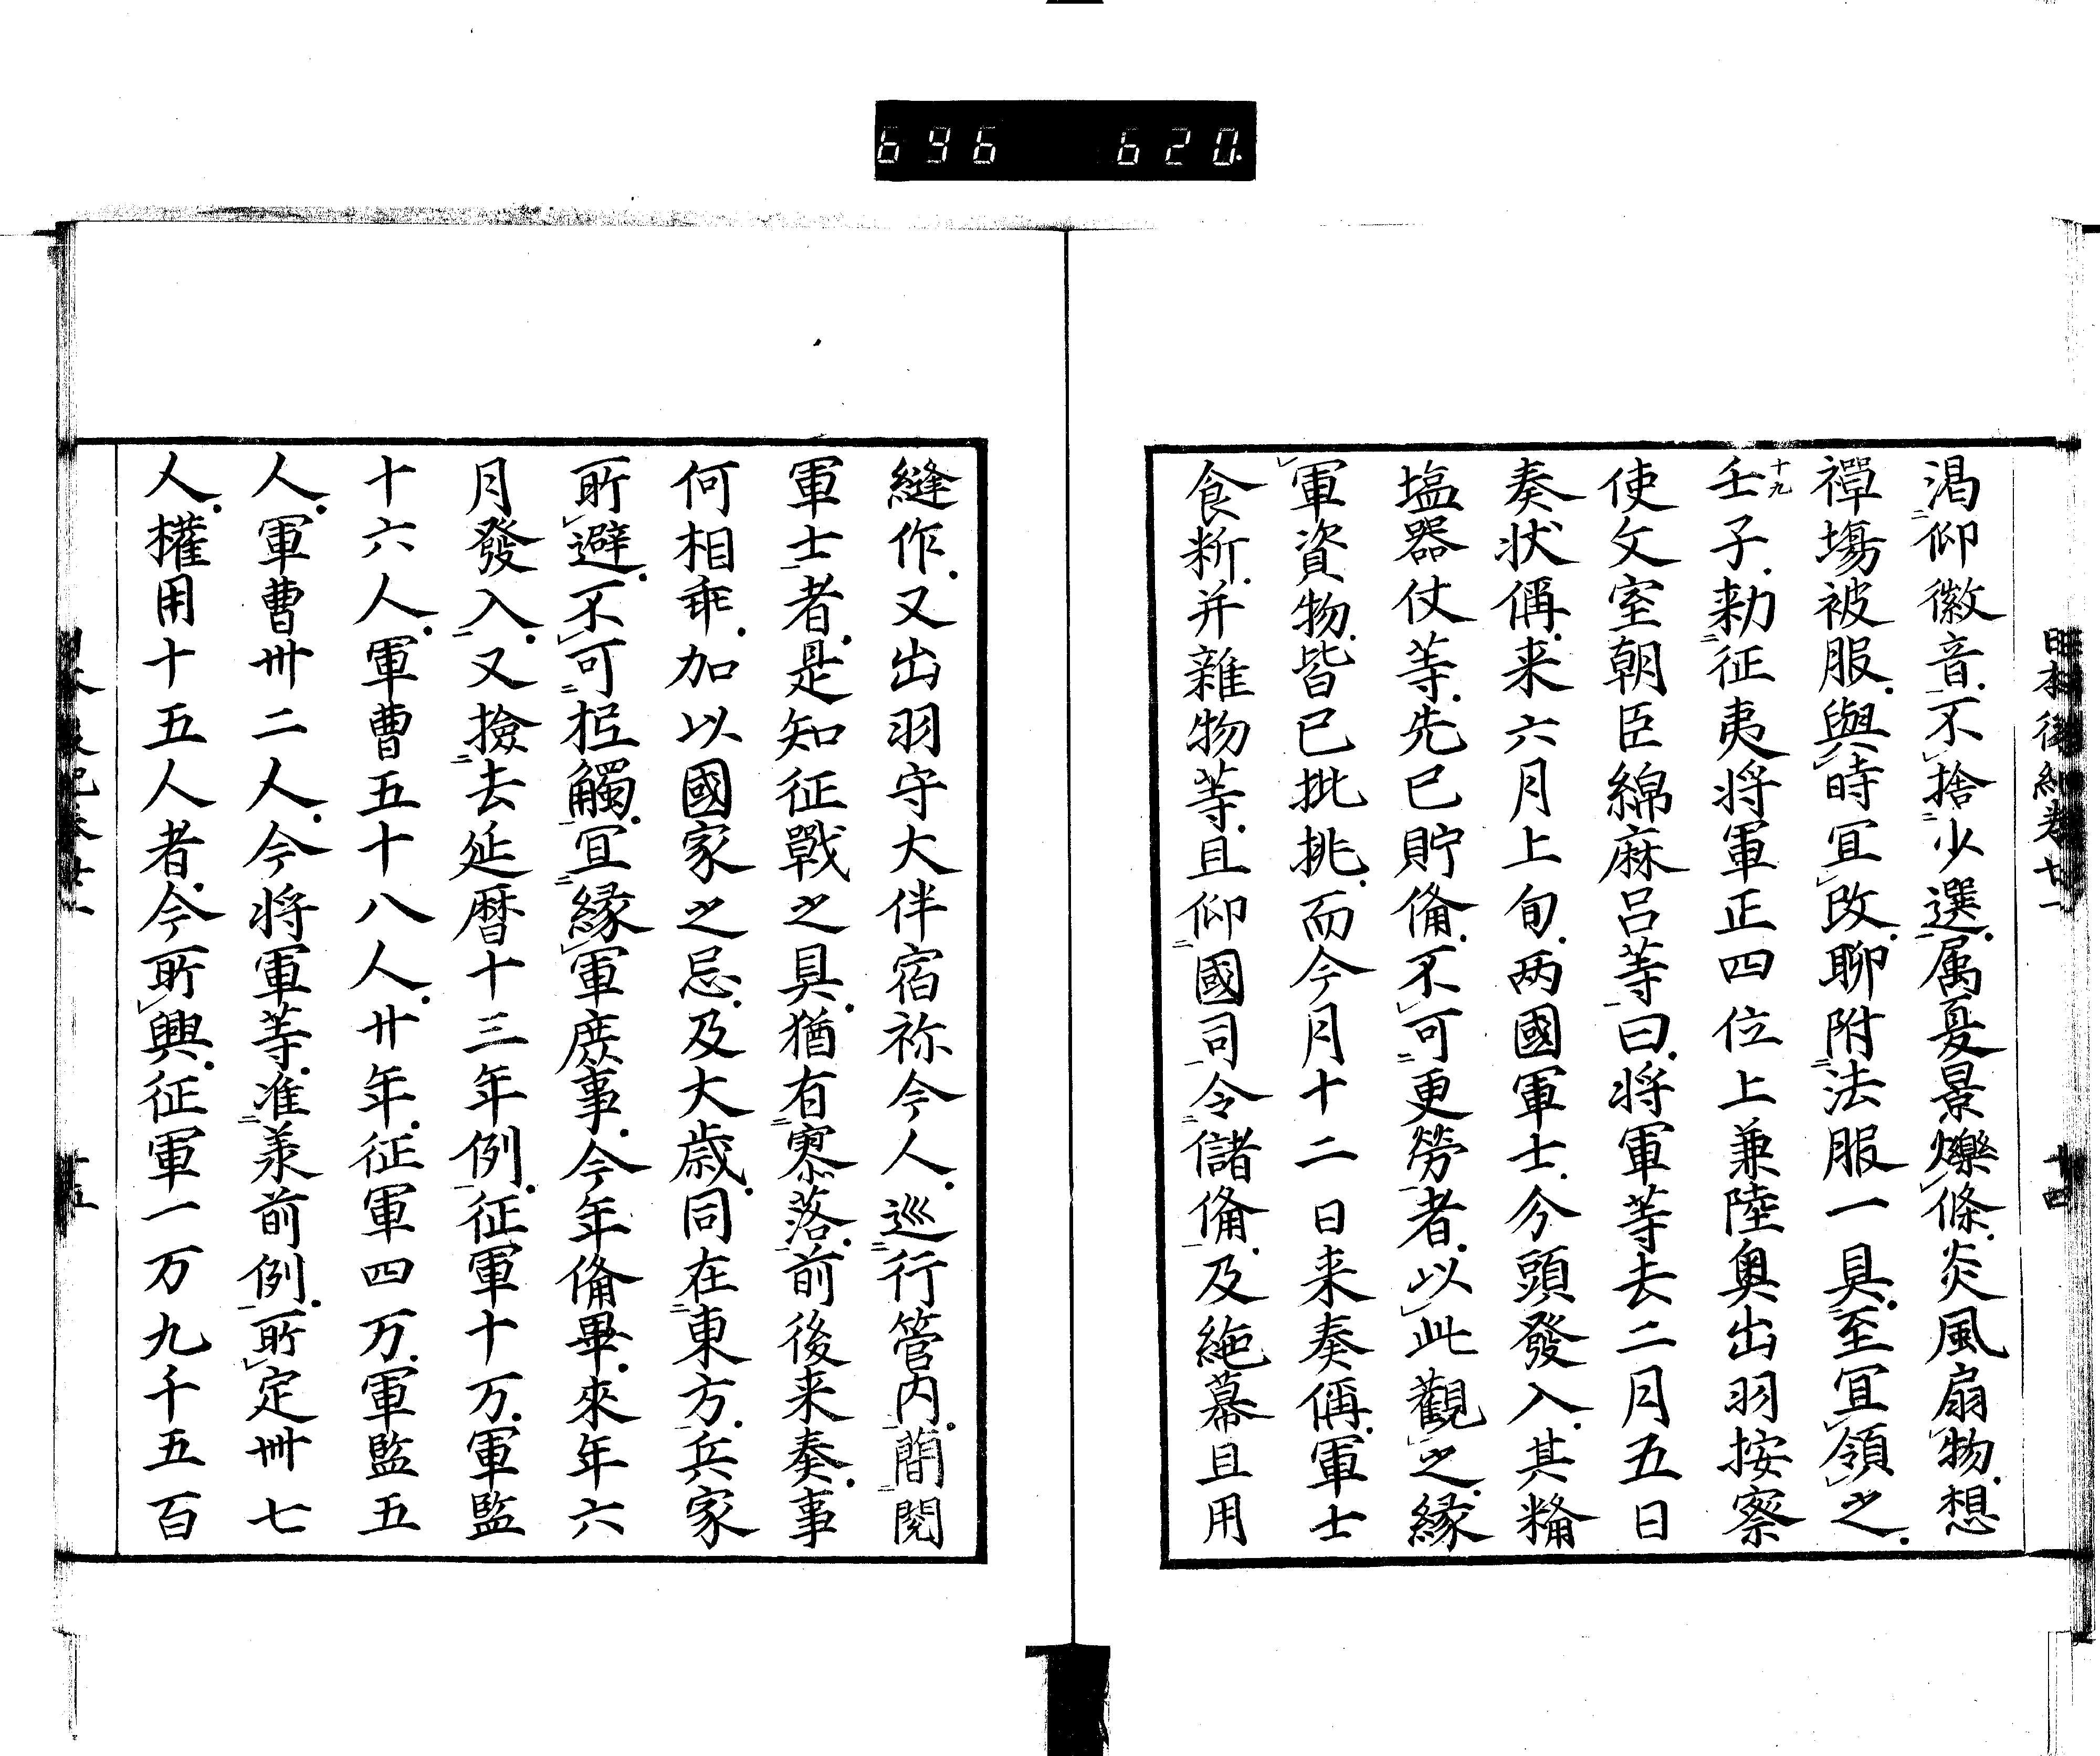 696 620.
日本後紀卷廿一 十四
渇仰徽音不捨少選属夏景爍條炎風扇物想
禪塲被服與時冝改聊附法服一具至冝領之
十九
壬子勅征夷将軍正四位上兼陸奥出羽按察
使文室朝臣綿麻呂等曰将軍等去二月五日
奏状偁来六月上旬两國軍士分頭發入其糒
塩器仗等先已貯備不可更勞者以此觀之縁
軍資物皆已批挑而今月十二日来奏偁軍士
食粎并雜物等且仰國司令儲備及絁幕且用
縫作又出羽守大伴宿祢今人巡行管内蕳閲
軍士者是知征戰之具猶有寥落前後来奏事
何相乖加以國家之忌及大歳同在東方兵家
所避不可抂觸冝縁軍庻事今年備畢來年六
月發入又撿去延暦十三年例征軍十万軍監
十六人軍曹五十八人廿年征軍四万軍監五
人軍曹卅二人今将軍等准羕前例所定卌七
人權用十五人者今所興征軍一万九千五百